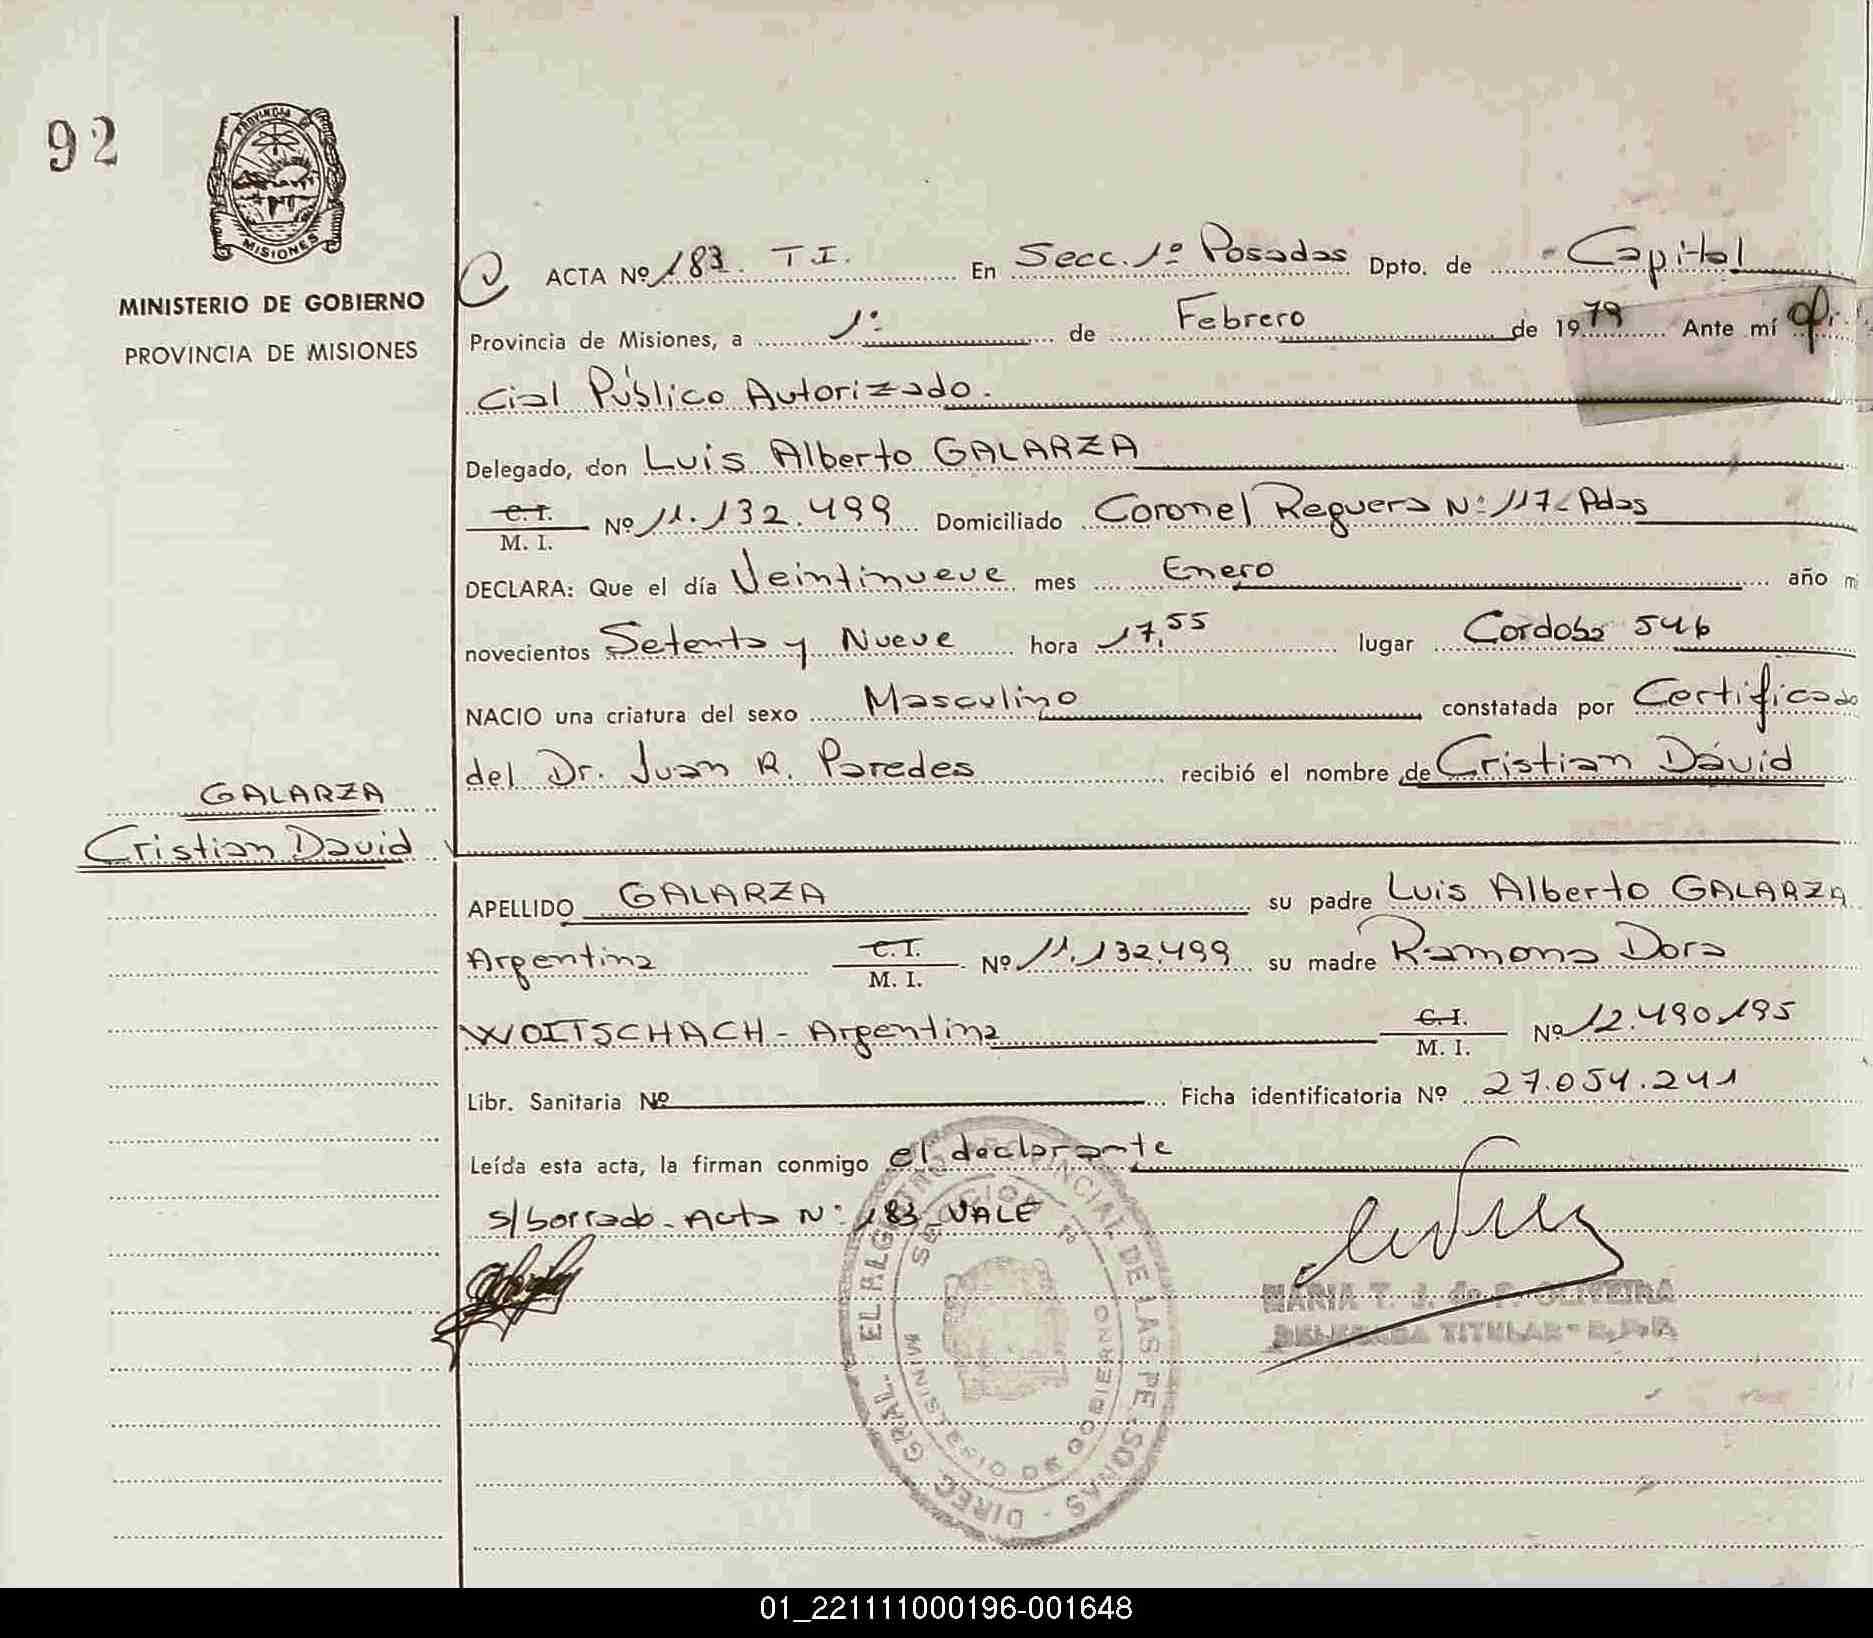 92
PROVINCIA DE
MISIONES
MINISTERIO DE GOBIERNO
PROVINCIA DE MISIONES
ACTA Nº 183. T.I. En Secc. 1º Posadas Dpto. de Capital
Provincia de Misiones, a 1º de Febrero de 1979 Ante mí Ofi
cial Público Autorizado.
Delegado, don Luis Alberto GALARZA
C. I.
M. I. Nº 11.132.499 Domiciliado Coronel Reguera Nº 117 - Pdas
DECLARA: Que el día Veintinueve mes Enero año mi
novecientos Setenta y Nueve hora 17,55 lugar Cordoba 546
NACIO una criatura del sexo Masculino constatada por Certificado
del Dr. Juan R. Paredes recibió el nombre de Cristian David
GALARZA
Cristian David
APELLIDO GALARZA su padre Luis Alberto GALARZA
Argentina C. I. M. I. Nº 11.132.499 su madre Ramona Dora
WOITSCHACH - Argentina C. I. M. I. Nº 12.490.195
Libr. Sanitaria Nº Ficha identificatoria Nº 27.054.241
Leída esta acta, la firman conmigo el declarante
s/borrado - Acta Nº 183 VALE
MARIA T. J. de P. OLIVEIRA
DELEGADA TITULAR - R.P.P.
DIREC. GRAL. DEL PROVINCIAL DE LAS PERSONAS
SECCION 1º
MINISTERIO DE GOBIERNO
01_221111000196-001648